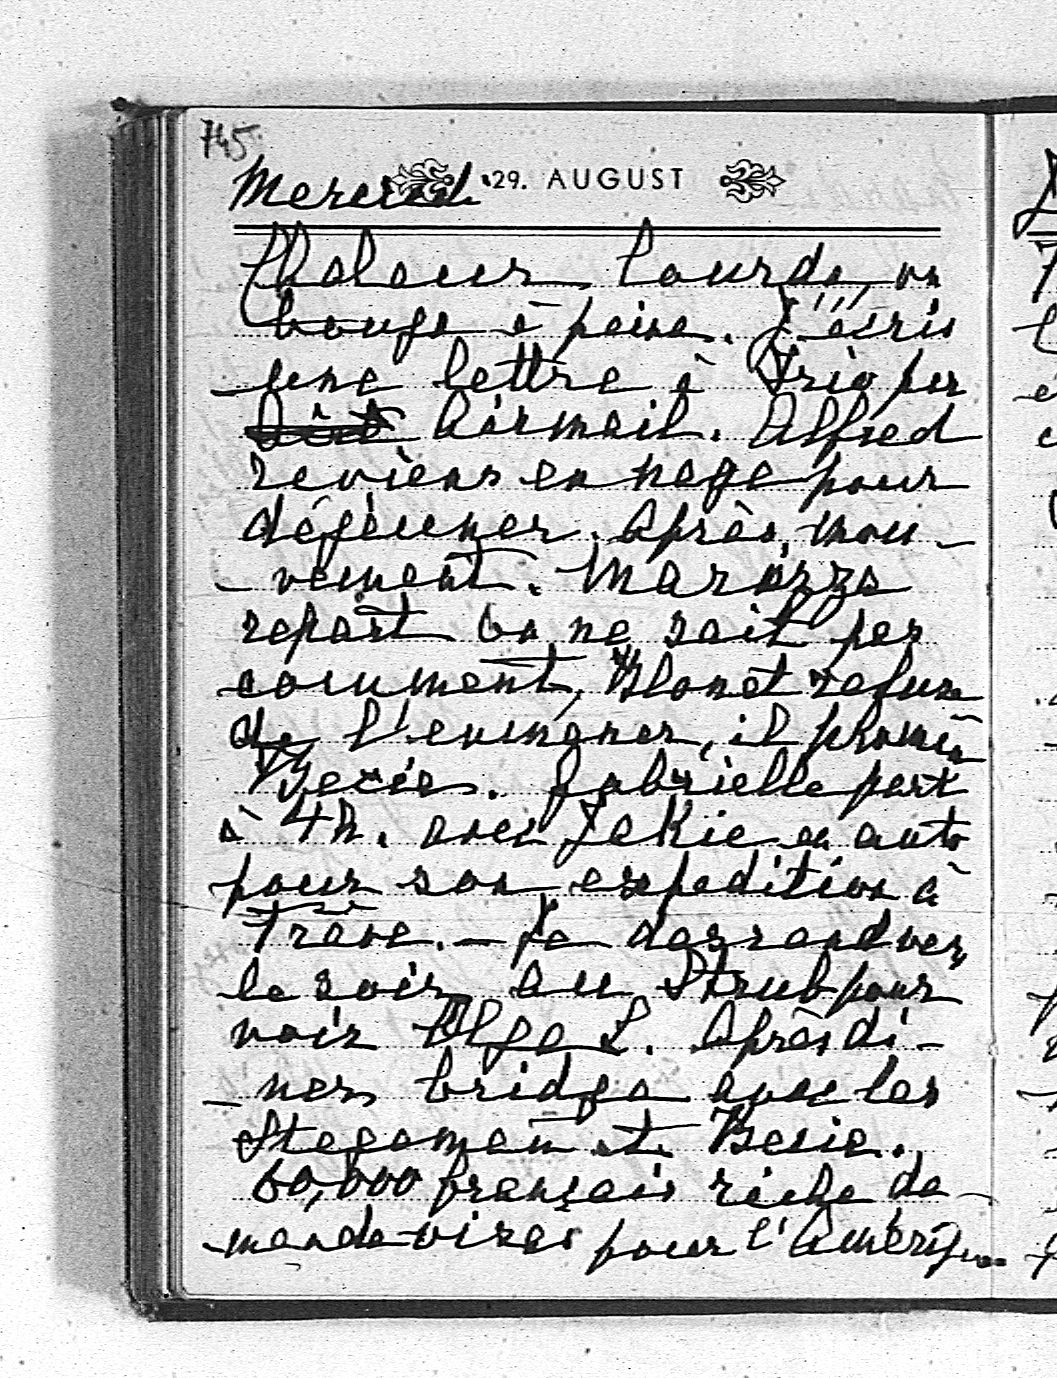 745
Mercredi 29. AUGUST
Chaleur lourde, on
bouge à peine. J'écris
une lettre à Trio par
Airmail. Alfred
reviens en nage pour
déjeuner. Après, mou-
vement.
repart on ne sait pas
comment, Blonet refuse
de l'emmener, il promène
Becie. Gabrielle part
à 4h. avec Jakie en auto
pour son expedition à
Trève. — Je dessend vers
le soir au Strub pour
voir Olga L. Après di-
ner, bridge avec les
Stegemann et Becie.
60,000 français riche de-
mande vires pour l'Amérique